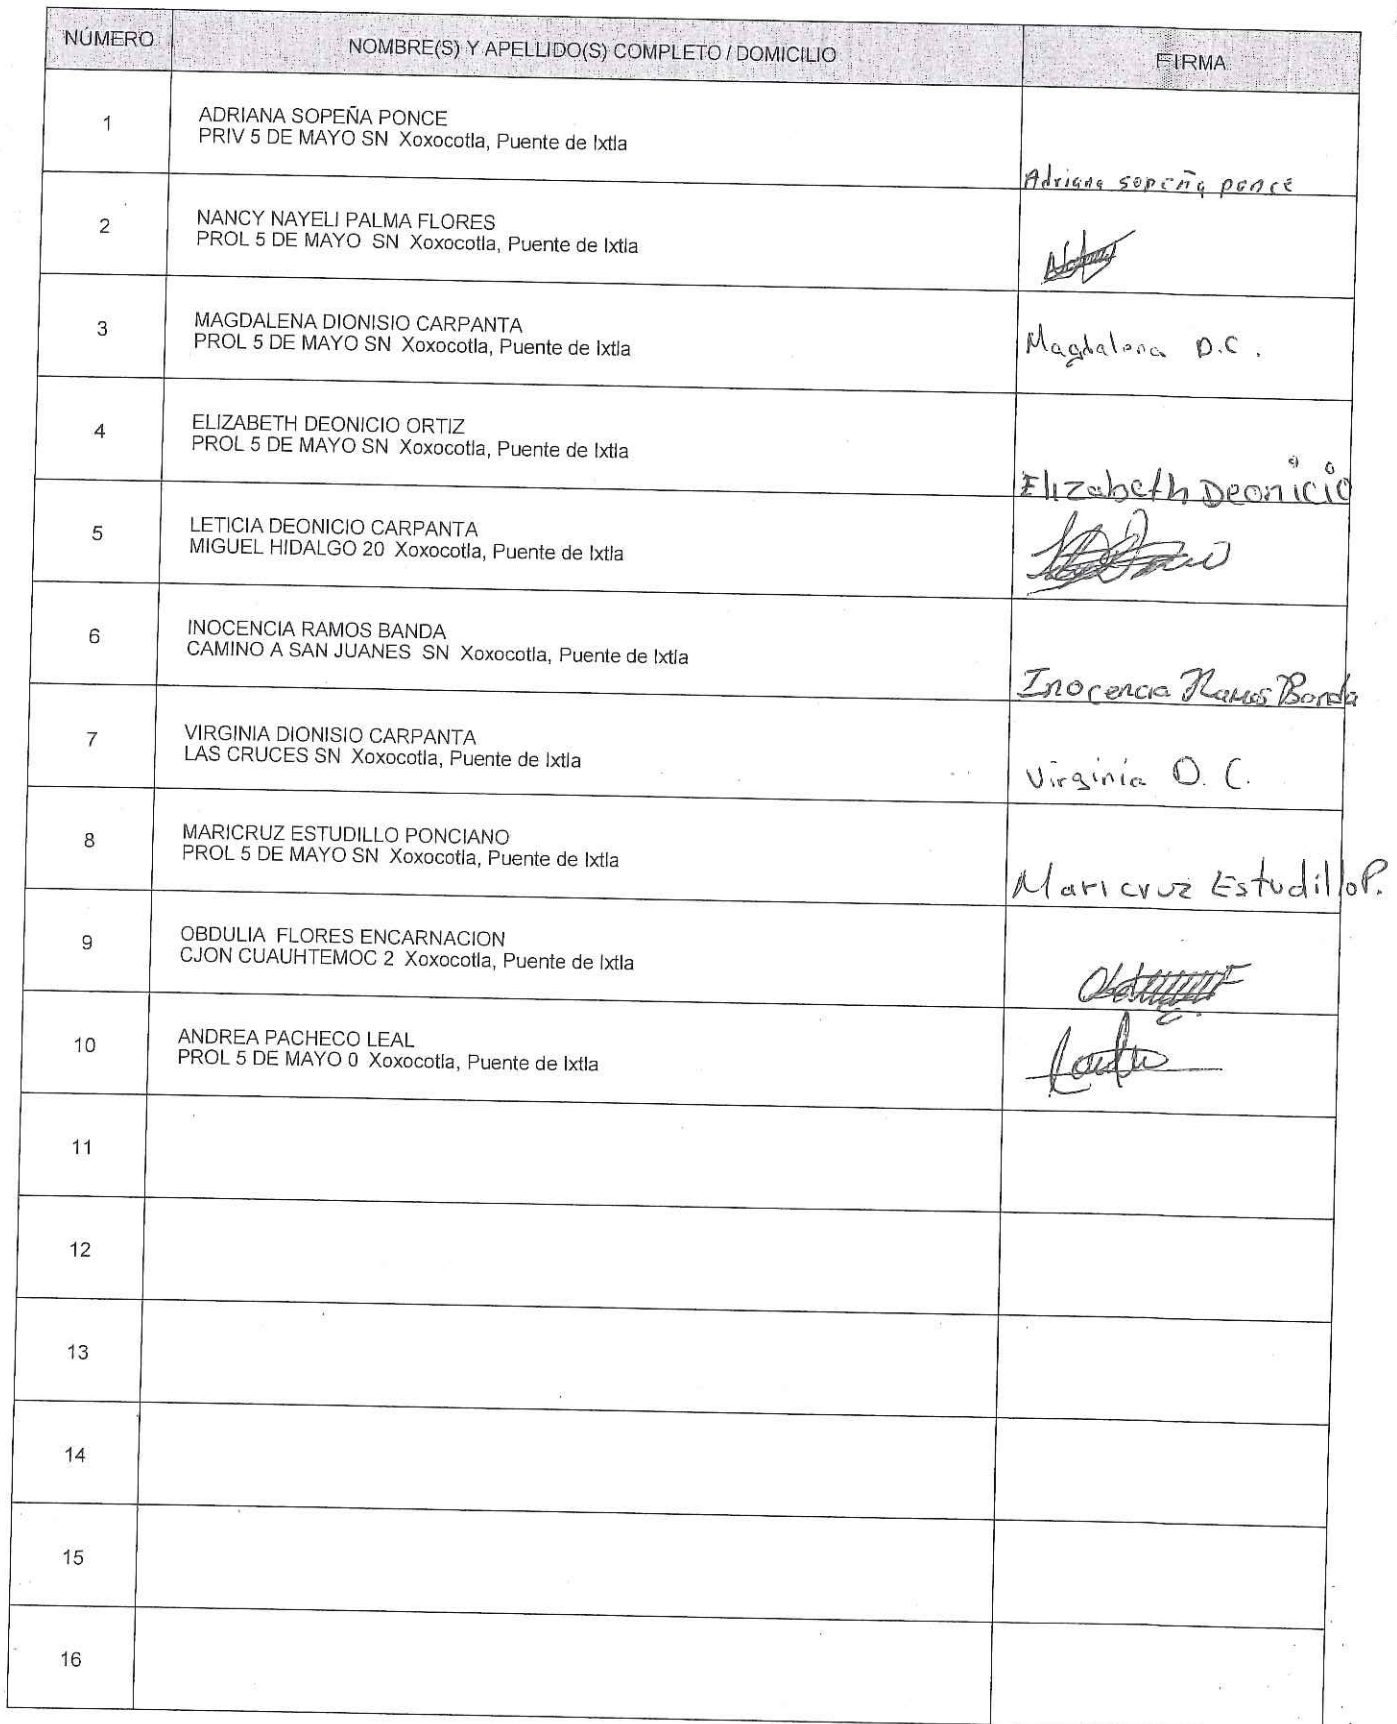 NÚMERO NOMBRE(S) Y APELLIDO(S) COMPLETO / DOMICILIO FIRMA
1 ADRIANA SOPEÑA PONCE
PRIV 5 DE MAYO SN Xoxocotla, Puente de Ixtla
Adriana sopeña ponce
2 NANCY NAYELI PALMA FLORES
PROL 5 DE MAYO SN Xoxocotla, Puente de Ixtla
3 MAGDALENA DIONISIO CARPANTA
PROL 5 DE MAYO SN Xoxocotla, Puente de Ixtla
Magdalena D.C.
4 ELIZABETH DEONICIO ORTIZ
PROL 5 DE MAYO SN Xoxocotla, Puente de Ixtla
Elizabeth Deonicio
5 LETICIA DEONICIO CARPANTA
MIGUEL HIDALGO 20 Xoxocotla, Puente de Ixtla
6 INOCENCIA RAMOS BANDA
CAMINO A SAN JUANES SN Xoxocotla, Puente de Ixtla
Inocencia Ramos Banda
7 VIRGINIA DIONISIO CARPANTA
LAS CRUCES SN Xoxocotla, Puente de Ixtla
Virginia D. C.
8 MARICRUZ ESTUDILLO PONCIANO
PROL 5 DE MAYO SN Xoxocotla, Puente de Ixtla
Maricruz Estudillo P.
9 OBDULIA FLORES ENCARNACION
CJON CUAUHTEMOC 2 Xoxocotla, Puente de Ixtla
10 ANDREA PACHECO LEAL
PROL 5 DE MAYO 0 Xoxocotla, Puente de Ixtla
11
12
13
14
15
16